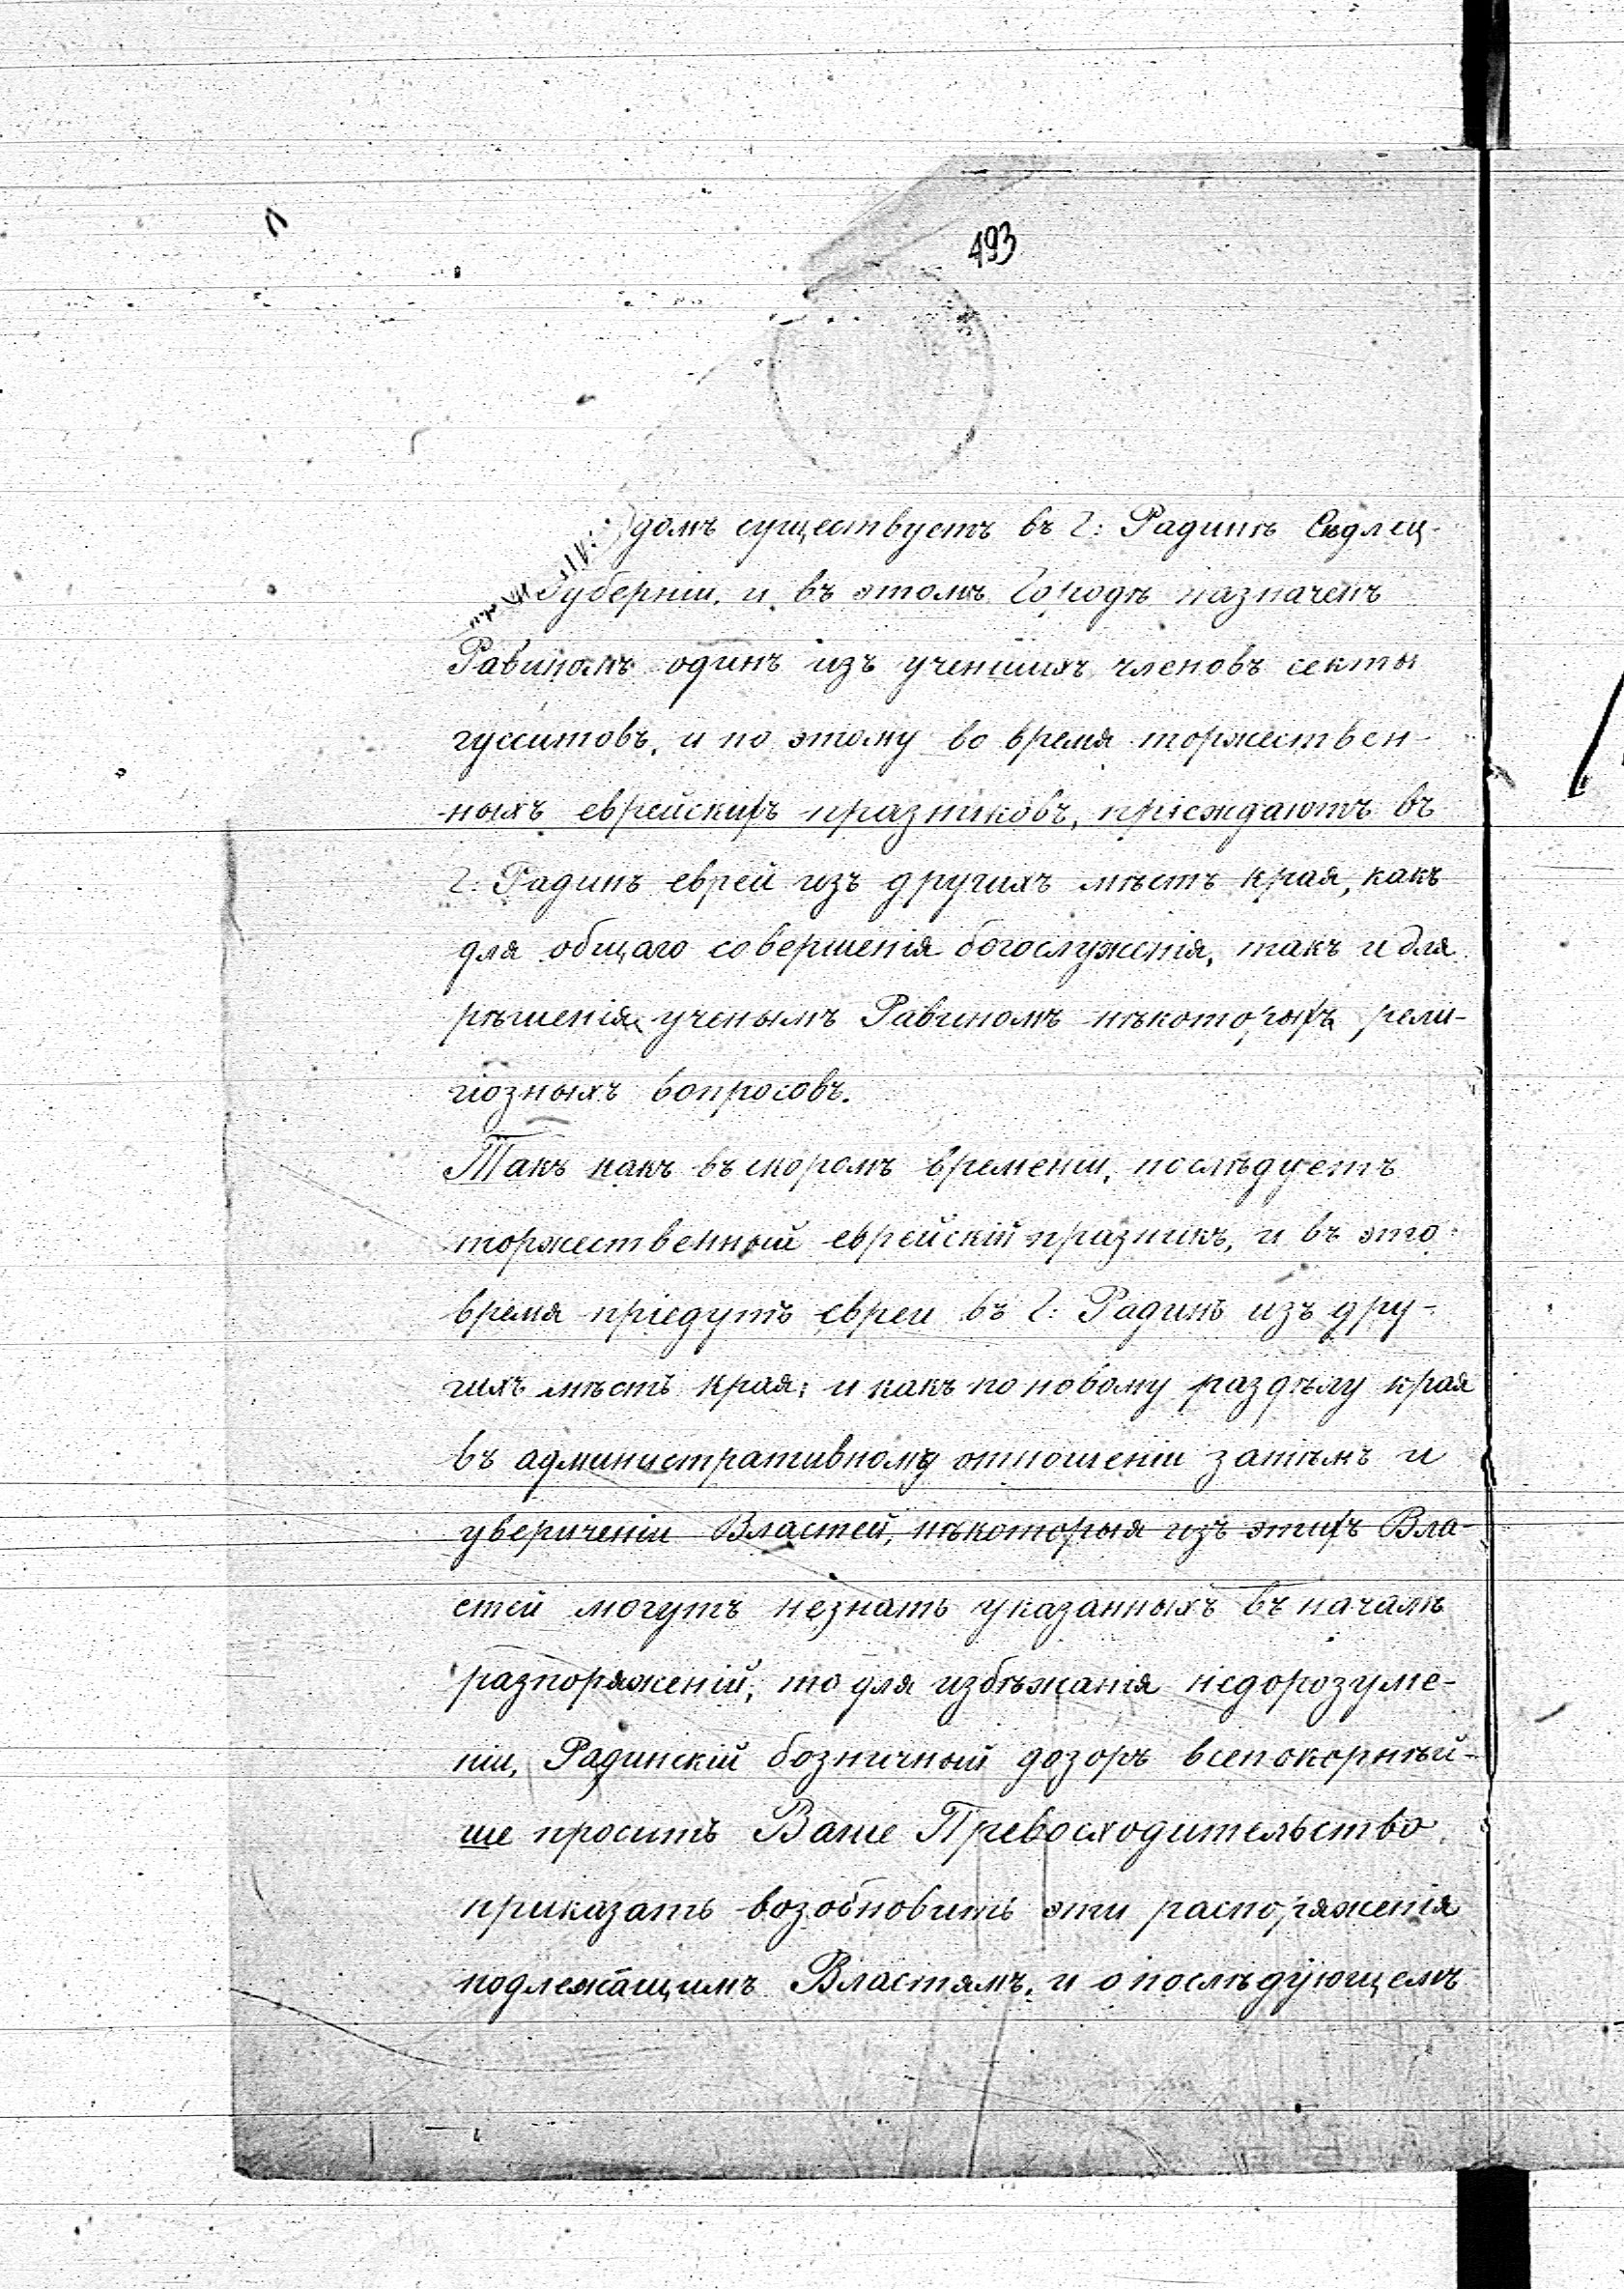 493
домъ существуетъ въ г: Радинѣ Сѣдлец-
Губерніи, и въ этомъ Городѣ назначенъ
Равиномъ одинъ изъ ученшихъ членовъ секты
гусситовъ, и по этому во время торжествен-
ныхъ еврейскихъ празниковъ, пріезждаютъ въ
г: Радинъ еврей изъ другихъ мѣстъ края, какъ
для общаго совершенія богослуженія, такъ и для
рѣшенія ученымъ Равиномъ нѣкоторыхъ рели-
гіозныхъ вопросовъ.
Такъ какъ въ скоромъ времени, послѣдуетъ
торжественный еврейскій празникъ, и въ это
время пріедутъ евреи въ г: Радинъ изъ дру-
гихъ мѣстъ края; и какъ по новому раздѣлу края
въ административному отношеніи затѣмъ и
уверичении Властей, нѣкоторыя изъ этихъ Вла-
стей могутъ незнать указанныхъ въ началѣ
разпоряженій, то для избѣжанія недорозуме-
ніи, Радинскій бозничный дозоръ всепокорнѣй-
ше проситъ Ваше Превосходительство
приказать возобновить эти распоряженія
подлежащимъ Властямъ, и о послѣдующемъ